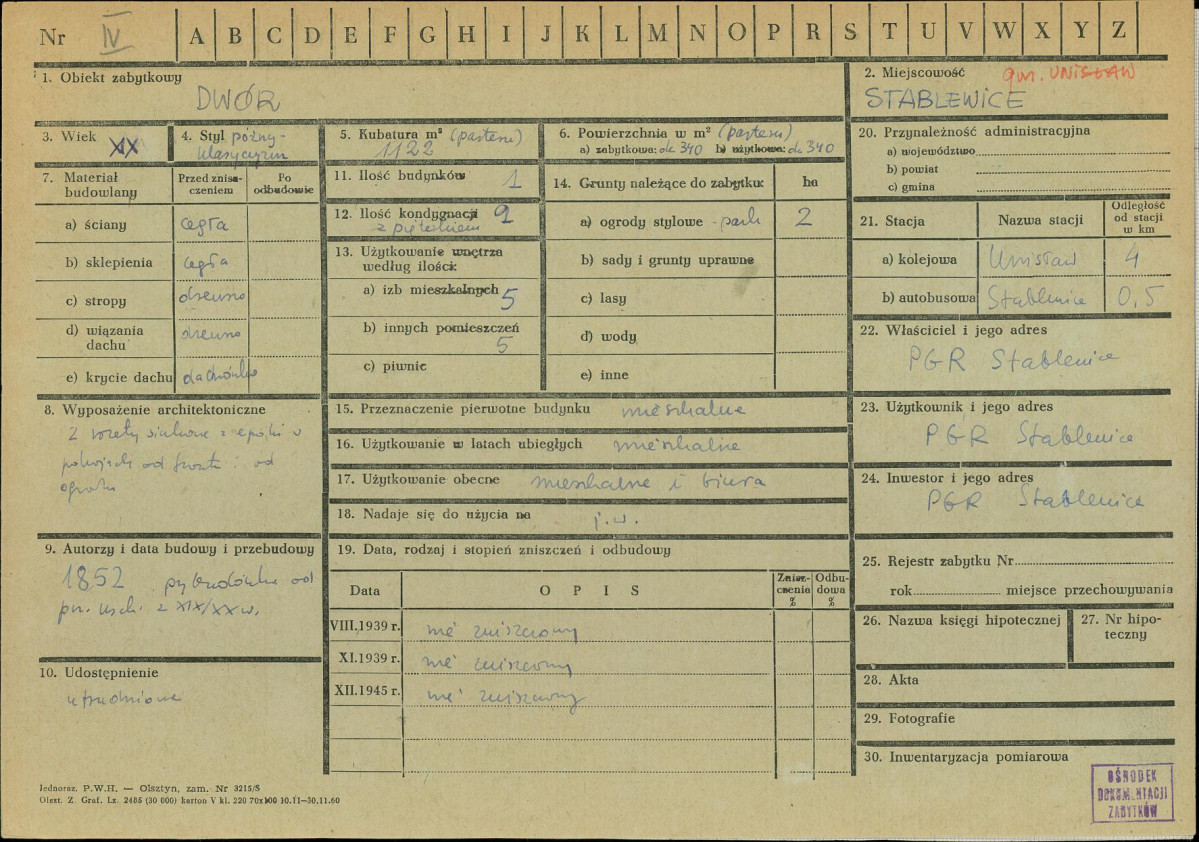 Nr IV A B C D E F G H I J K L M N O P R S T U V W X Y Z
1. Obiekt zabytkowy
DWÓR
2. Miejscowość gm. UNISŁAW
STABLEWICE
3. Wiek XIX
4. Styl późny-
klasycyzm
5. Kubatura m³ (parteru)
1122
6. Powierzchnia w m² (parteru)
a) zabytkowa: ok 340 b) użytkowa: ok 340
7. Materiał
budowlany
Przed znisz-
czeniem
Po
odbudowie
a) ściany cegła
b) sklepienia cegła
c) stropy drewno
d) wiązania
dachu drewno
e) krycie dachu dachówka
8. Wyposażenie architektoniczne
2 rozety stiukowe z epoki w
pokojach od frontu i od
ogrodu
9. Autorzy i data budowy i przebudowy
1852 przybudówka od
pn. wsch. z XIX/XX w.
10. Udostępnienie
utrudnione
11. Ilość budynków 1
12. Ilość kondygnacji 2
z pięterkiem
13. Użytkowanie wnętrza
według ilości:
a) izb mieszkalnych 5
b) innych pomieszczeń
5
c) piwnic
14. Grunty należące do zabytku: ha
a) ogrody stylowe - park 2
b) sady i grunty uprawne
c) lasy
d) wody
e) inne
15. Przeznaczenie pierwotne budynku mieszkalne
16. Użytkowanie w latach ubiegłych mieszkalne
17. Użytkowanie obecne mieszkalne i biura
18. Nadaje się do użycia na j.w.
19. Data, rodzaj i stopień zniszczeń i odbudowy
Data
O P I S
Znisz-
czenia
%
Odbu-
dowa
%
VIII.1939 r. nie zniszczony
XI.1939 r. nie zniszczony
XII.1945 r. nie zniszczony
20. Przynależność administracyjna
a) województwo
b) powiat
c) gmina
21. Stacja
Nazwa stacji
Odległość
od stacji
w km
a) kolejowa Unisław 4
b) autobusowa Stablewice 0,5
22. Właściciel i jego adres
PGR Stablewice
23. Użytkownik i jego adres
PGR Stablewice
24. Inwestor i jego adres
PGR Stablewice
25. Rejestr zabytku Nr
rok miejsce przechowywania
26. Nazwa księgi hipotecznej
27. Nr hipo-
teczny
28. Akta
29. Fotografie
30. Inwentaryzacja pomiarowa
OŚRODEK
DOKUMENTACJI
ZABYTKÓW
Jednoraz. P.W.H. — Olsztyn, zam. Nr 3215/S
Olszt. Z. Graf. Lz. 2485 (30 000) karton V kl. 220 70x100 10.11-30.11.60